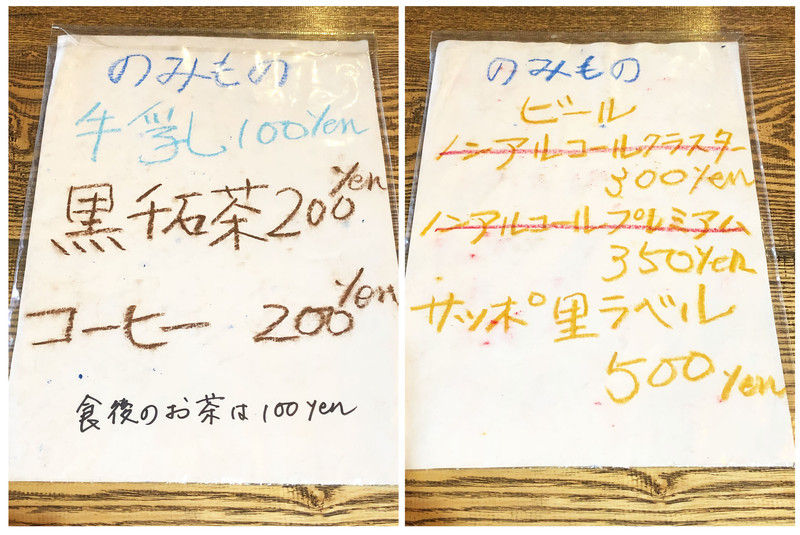 のみもの
牛乳 100yen
黒千石茶200yen
コーヒー 200yen
食後のお茶は100yen
のみもの
ビール
ノンアルコールクラスター
300yen
ノンアルコールプレミアム
350yen
サッポロ黒ラベル
500yen